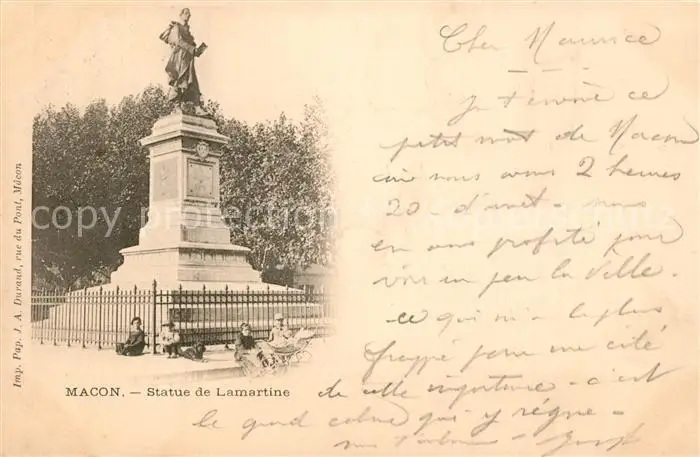 Cher Maurice
Je t'envoie ce
petit mot de Macon
où nous avons 2 heures
20 d'arrêt - nous
en avons profité pour
voir un peu la Ville.
ce qui m'a le plus
frappé pour une cité
de cette importance - c'est
le grand calme qui y règne -
Imp. Pap. J. A. Durand, rue du Pont, Mâcon
MACON. — Statue de Lamartine
copyright